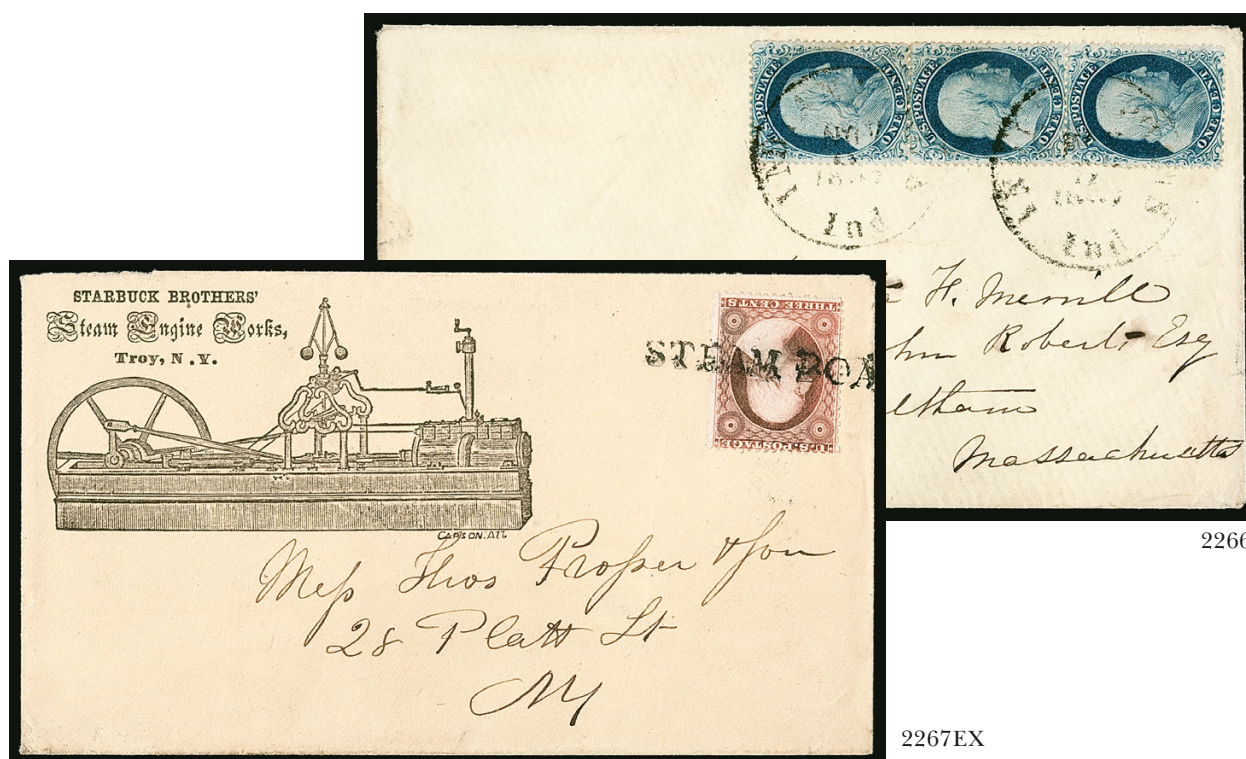 U.S. POSTAGE ONE CENT
U.S. POSTAGE ONE CENT
U.S. POSTAGE ONE CENT
Ind
Ind
H. Merrill
Roberts Esq
ltham
Massachusetts
2266
STARBUCK BROTHERS'
Steam Engine Works,
Troy, N.Y.
THREE CENTS
U.S. POSTAGE
STEAM BOA
Mess Thos Prosser & Son
28 Platt St
NY
2267EX